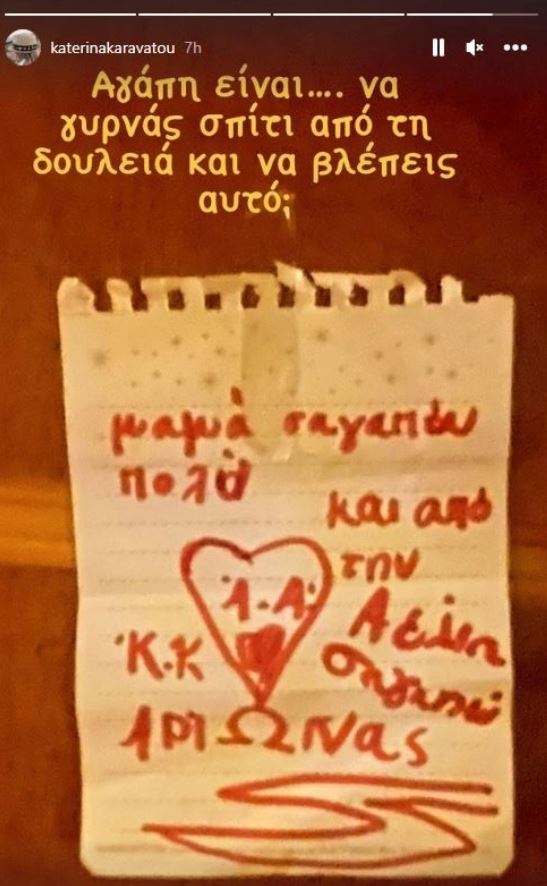 katerinakaravatou 7h
Αγάπη είναι.... να
γυρνάς σπίτι από τη
δουλειά και να βλέπεις
αυτό;
μαμά σαγαπάω
πολύ
και από
την
Α.Α.
Κ.Κ
ΑΡΙΩΝας